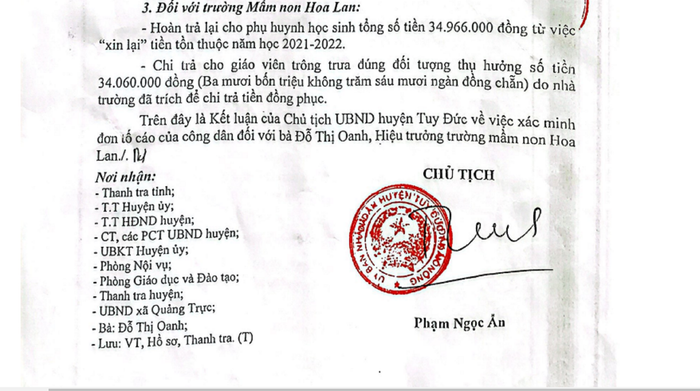 3. Đối với trường Mầm non Hoa Lan:
- Hoàn trả lại cho phụ huynh học sinh tổng số tiền 34.966.000 đồng từ việc
“xin lại” tiền tồn thuộc năm học 2021-2022.
- Chi trả cho giáo viên trông trưa đúng đối tượng thụ hưởng số tiền
34.060.000 đồng (Ba mươi bốn triệu không trăm sáu mươi ngàn đồng chẵn) do nhà
trường đã trích để chi trả tiền đồng phục.
Trên đây là Kết luận của Chủ tịch UBND huyện Tuy Đức về việc xác minh
đơn tố cáo của công dân đối với bà Đỗ Thị Oanh, Hiệu trưởng trường mầm non Hoa
Lan./.
Nơi nhận:
- Thanh tra tỉnh;
- T.T Huyện ủy;
- T.T HĐND huyện;
- CT, các PCT UBND huyện;
- UBKT Huyện ủy;
- Phòng Nội vụ;
- Phòng Giáo dục và Đào tạo;
- Thanh tra huyện;
- UBND xã Quảng Trực;
- Bà: Đỗ Thị Oanh;
- Lưu: VT, Hồ sơ, Thanh tra. (T)
CHỦ TỊCH
ỦY BAN NHÂN DÂN HUYỆN TUY ĐỨC
Phạm Ngọc Ẩn